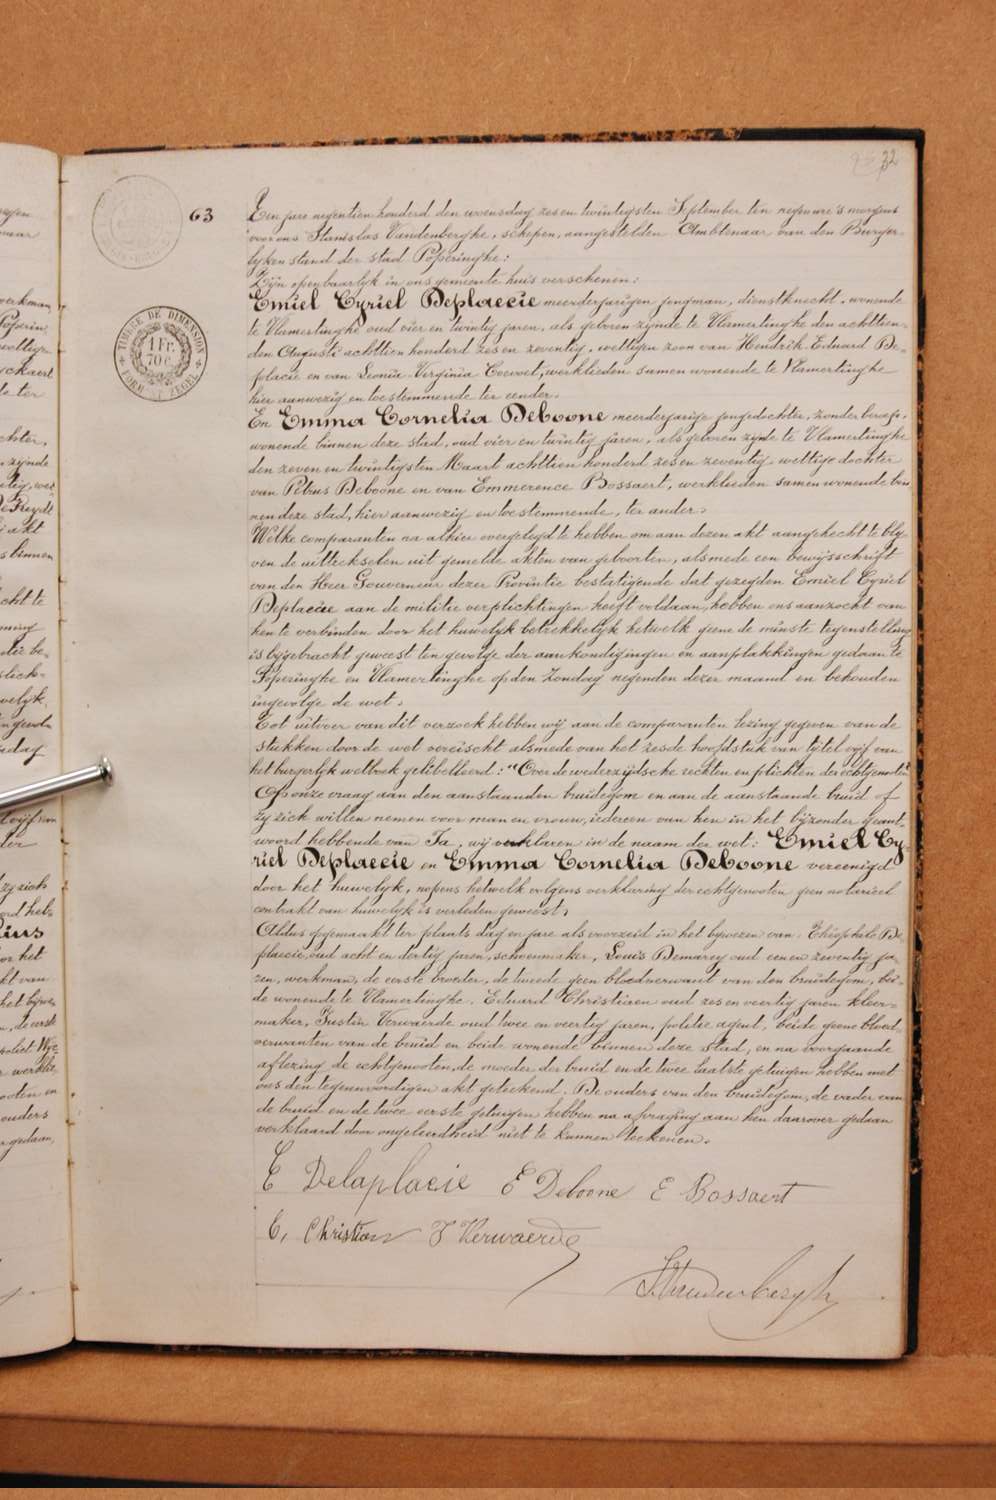 32
63
Een jare negentien honderd den woensdag zesen twintigsten September ten negen ure 's morgens
voor ons Stanislas Vandenberghe, schepen, aangestelden Ambtenaar van den Burger-
lyken stand der stad Poperinghe:
Zyn openbaarlyk in ons gemeente huis verschenen:
Emiel Cyriel Deplaecie meerderjarigen jongman, dienstknecht, wonende
te Vlamertinghe oud vier en twintig jaren, als geboren zynde te Vlamertinghe den achttien-
den Augusti achttien honderd zes en zeventig, wettigen zoon van Hendrik Eduard De-
placie en van Leonia Virginia Coevoet, werklieden samen wonende te Vlamertinghe
hier aanwezig en toestemmende ter eender.
En Emma Cornelia Deboone meerderjarige jongedochter, zonder beroep,
wonende binnen deze stad, oud vier en twintig jaren, als geboren zynde te Vlamertinghe
den zeven en twintigsten Maart achttien honderd zes en zeventig, wettige dochter
van Petrus Deboone en van Emmerence Bossaert, werklieden samen wonende bin
nen deze stad, hier aanwezig en toestemmende, ter ander.
Welke comparanten na alhier overgelegd te hebben om aan dezen akt aangehecht te bly-
ven de uittrekselen uit gemelde akten van geboorten, alsmede een bewysschrift
van den Heer Gouverneur dezer Provintie bestatigende dat gezegden Emiel Cyriel
Deplaecie aan de militie verplichtingen heeft voldaan, hebben ons aanzocht van
hen te verbinden door het huwelyk betrekkelyk hetwelk geene de minste tegenstelling
is bygebracht geweest ten gevolge der aankondigingen en aanplakkingen gedaan te
Poperinghe en Vlamertinghe op den Zondag negenden dezer maand en behouden
ingevolge de wet.
Tot uitvoer van dit verzoek hebben wy aan de comparanten lezing gegeven van de
stukken door de wet vereischt alsmede van het zesde hoofdstuk van tytel vyf van
het burgerlyk wetboek gelibelleerd: "Over de wederzydsche rechten en plichten der echtgenooten"
Op onze vraag aan den aanstaanden bruidegom en aan de aanstaande bruid of
zy zich willen nemen voor man en vrouw, iedereen van hen in het byzonder geant-
woord hebbende van Ja, wy verklaren in de naam der wet: Emiel Cy-
riel Deplaecie en Emma Cornelia Deboone vereenigd
door het huwelyk, nopens hetwelk volgens verklaring der echtgenooten geen notarieel
contrakt van huwelyk is verleden geweest.
Aldus opgemaakt ter plaats dag en jare als voorzeid in het bywezen van Theophile De-
plaecie, oud acht en dertig jaren, schoenmaker, Louis Demarey oud een en zeventig ja-
ren, werkman, de eerste broeder, de tweede geen bloedverwant van den bruidegom, bei-
de wonende te Vlamertinghe. Eduard Christiaen oud zes en veertig jaren kleer-
maker, Justin Verwaerde oud twee en veertig jaren, politie agent, beide geene bloed-
verwanten van de bruid en beide wonende binnen deze stad, en na voorgaande
aflezing de echtgenooten, de moeder der bruid en de twee laatste getuigen hebben met
ons den tegenwoordigen akt geteekend. De ouders van den bruidegom, de vader van
de bruid en de twee eerste getuigen hebben na afvraging aan hen daarover gedaan
verklaard door ongeleerdheid niet te kunnen teekenen.
E Delaplacie E Deboone E Bossaert
E, Christiaen J Verwaerde
TIMBRE DE DIMENSION
1 Fr.
70 c.
FORMAAT ZEGEL